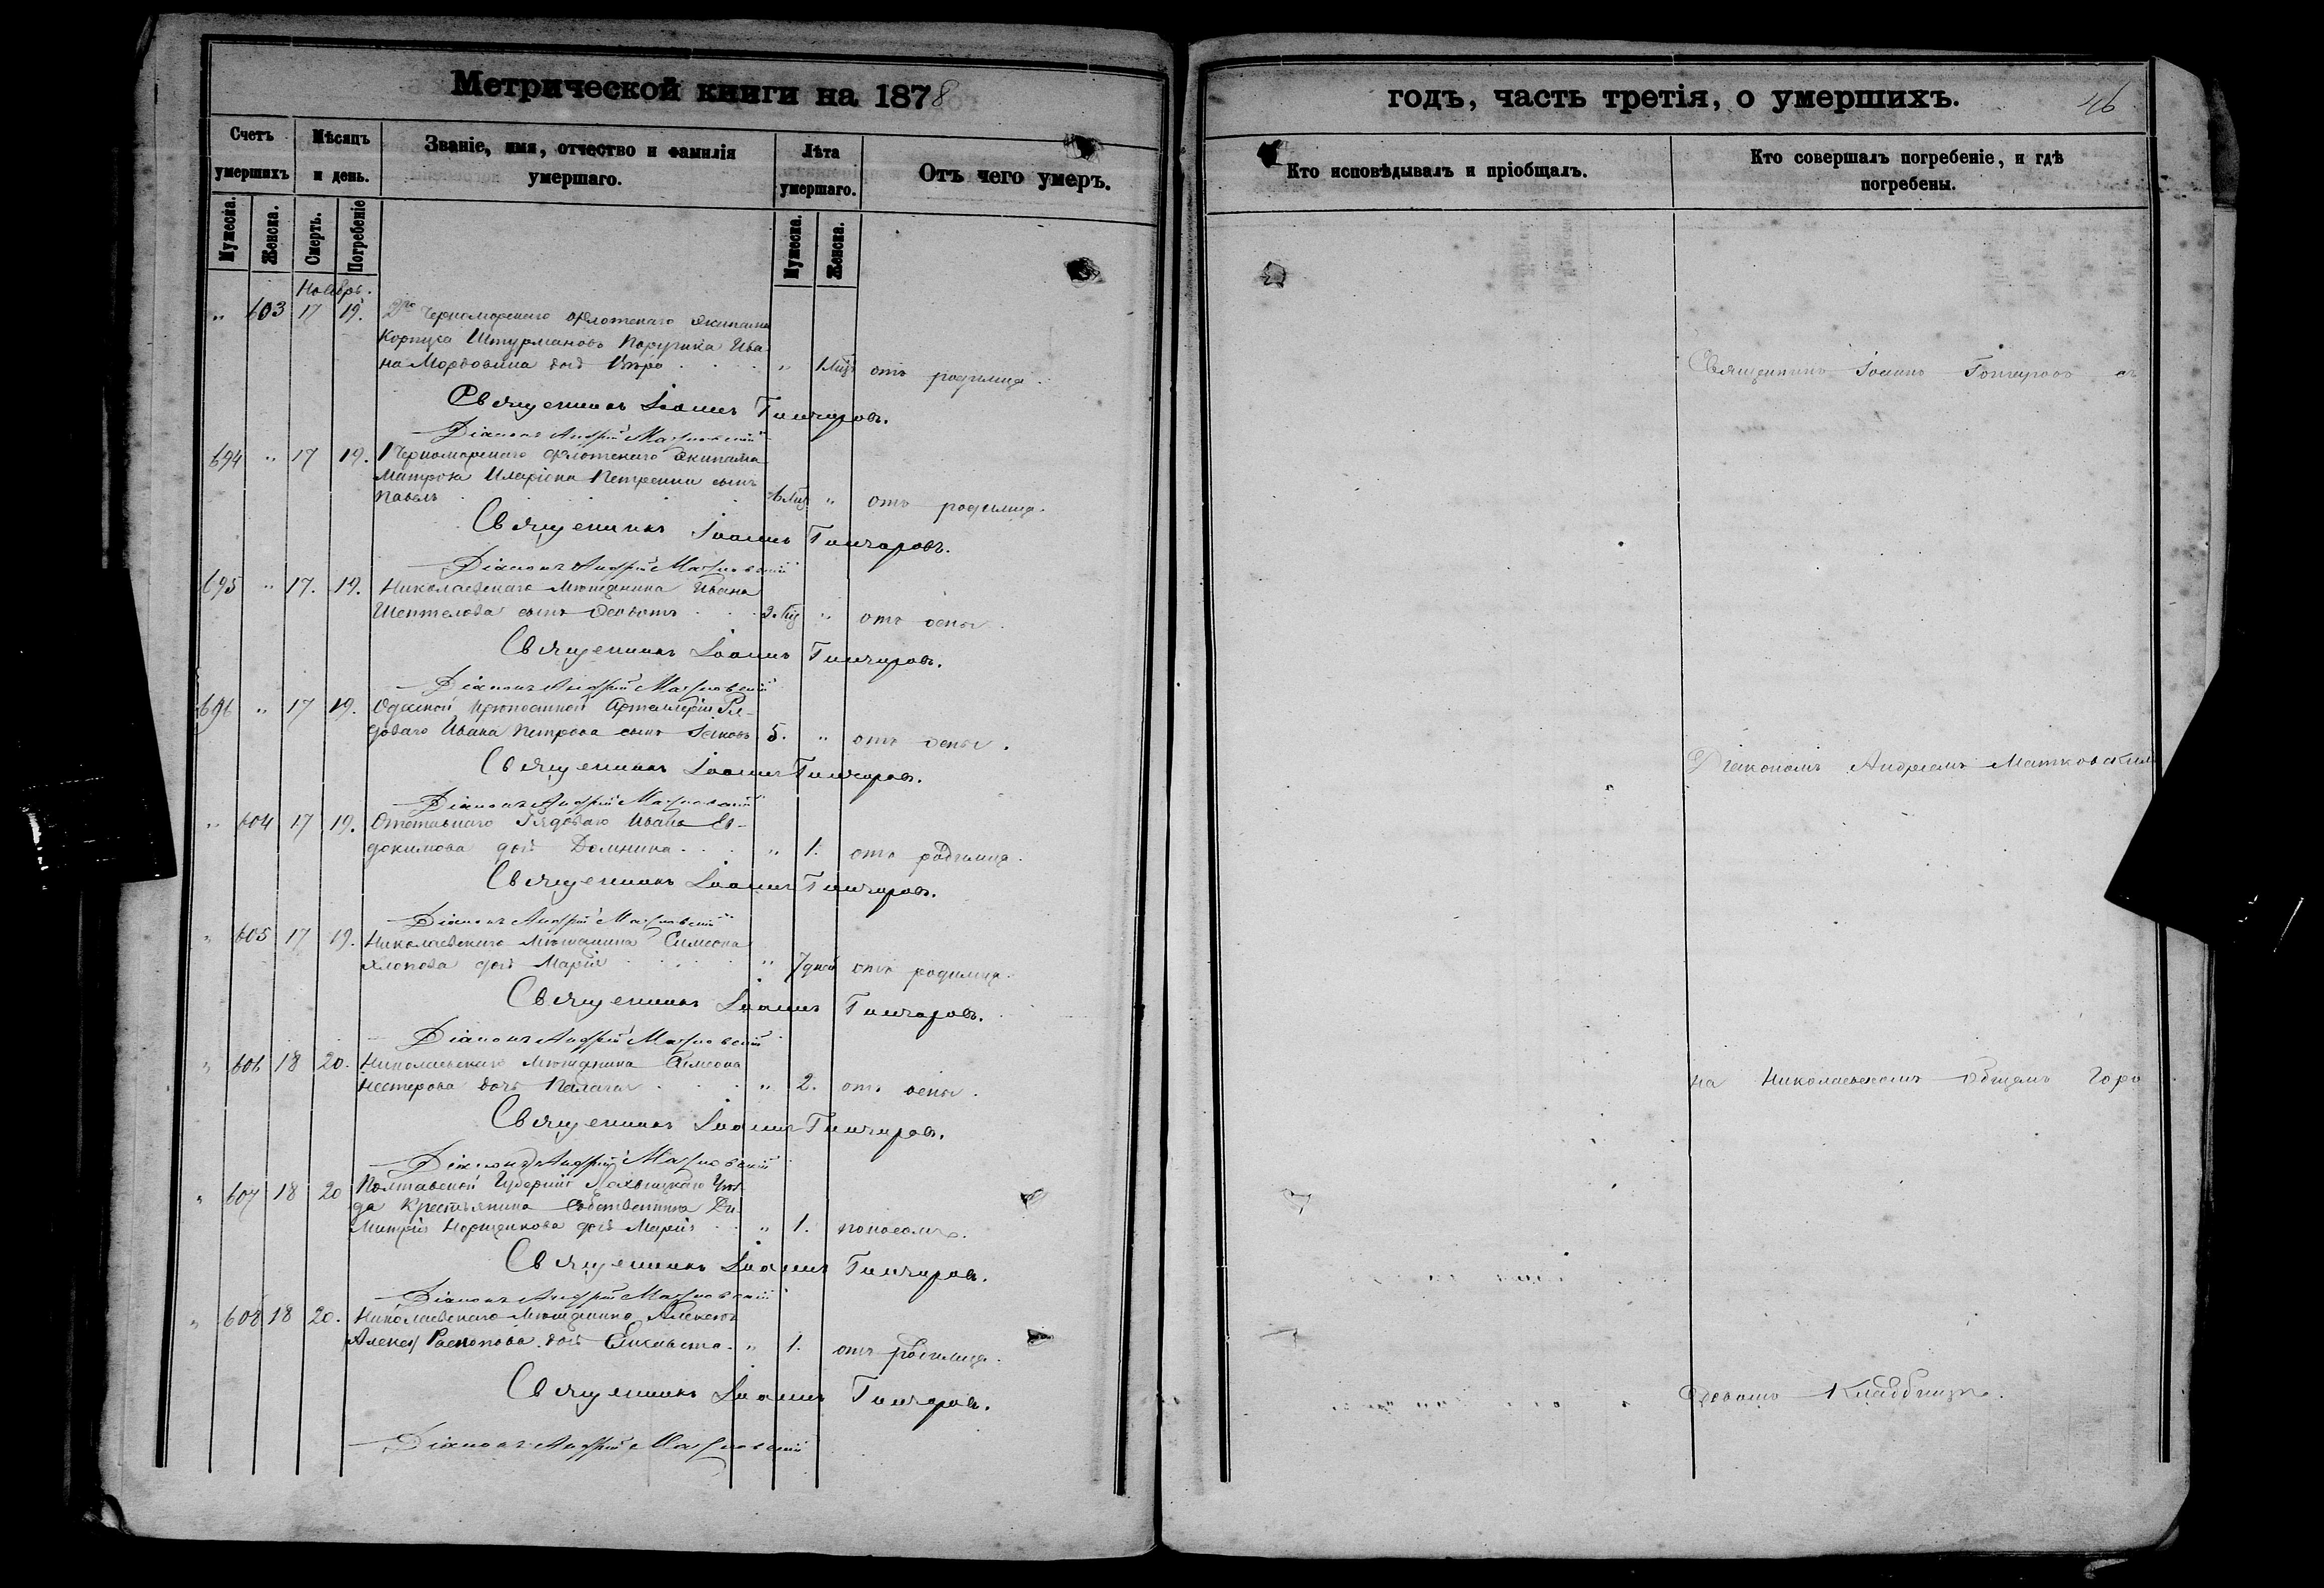 Метрической книги на 1878
Счетъ умершихъ
Мѣсяцъ и день.
Званіе, имя, отчество и фамилія умершаго.
Лѣта умершаго.
Отъ чего умеръ.
Мужеска. Женска. Смерть. Погребеніе Мужеска. Женска.
Ноябрь.
" 603 17 19. 2го Черноморскаго Флотскаго Экипажа
Корпуса Штурмановъ Поручика Ива-
на Мордовина дочь " отъ родимца.
Священникъ Іоаннъ Гончаровъ.
Діаконъ Андрей Матковскій
694 " 17 19. 1 Черноморскаго Флотскаго Экипажа
Матроса Иларіона Петренки сынъ
Павелъ " отъ родимца.
Священникъ Іоаннъ Гончаровъ.
Діаконъ Андрей Матковскій
695 " 17. 19. Николаевскаго Мѣщанина Ивана
сынъ " отъ оспы.
Священникъ Іоаннъ Гончаровъ.
Діаконъ Андрей Матковскій
696 " 17 19. Одесской Крѣпостной Артиллеріи Ря-
доваго Ивана Петрова сынъ Іаковъ 5. " отъ оспы.
Священникъ Іоаннъ Гончаровъ.
Діаконъ Андрей Матковскій
" 604 17 19. Отставнаго Рядоваго Ивана Ев-
докимова дочь Домникія " 1. отъ родимца.
Священникъ Іоаннъ Гончаровъ.
Діаконъ Андрей Матковскій
" 605 17 19. Николаевскаго Мѣщанина Симеона
Хлопова дочь Марія " 7 дней отъ родимца.
Священникъ Іоаннъ Гончаровъ.
Діаконъ Андрей Матковскій
" 606 18 20. Николаевскаго Мѣщанина Симеона
Нестерова дочь " 2. отъ оспы.
Священникъ Іоаннъ Гончаровъ.
Діаконъ Андрей Матковскій
" 607 18 20 Полтавской Губерніи Лохвицкаго Уѣз-
да Крестьянина Собственника Ди-
митрія дочь Марія " 1. поносомъ.
Священникъ Іоаннъ Гончаровъ.
Діаконъ Андрей Матковскій
" 608 18 20. Николаевскаго Мѣщанина Алексѣя
Распопова дочь " 1. отъ родимца.
Священникъ Іоаннъ Гончаровъ.
Діаконъ Андрей Матковскій
годъ, часть третія, о умершихъ.
46
Кто исповѣдывалъ и пріобщалъ.
Кто совершалъ погребеніе, и гдѣ погребены.
Священникъ Іоаннъ Гончаровъ съ
Діакономъ Андреемъ Матковскимъ
на Николаевскомъ Общемъ Горо
довомъ Кладбищѣ.